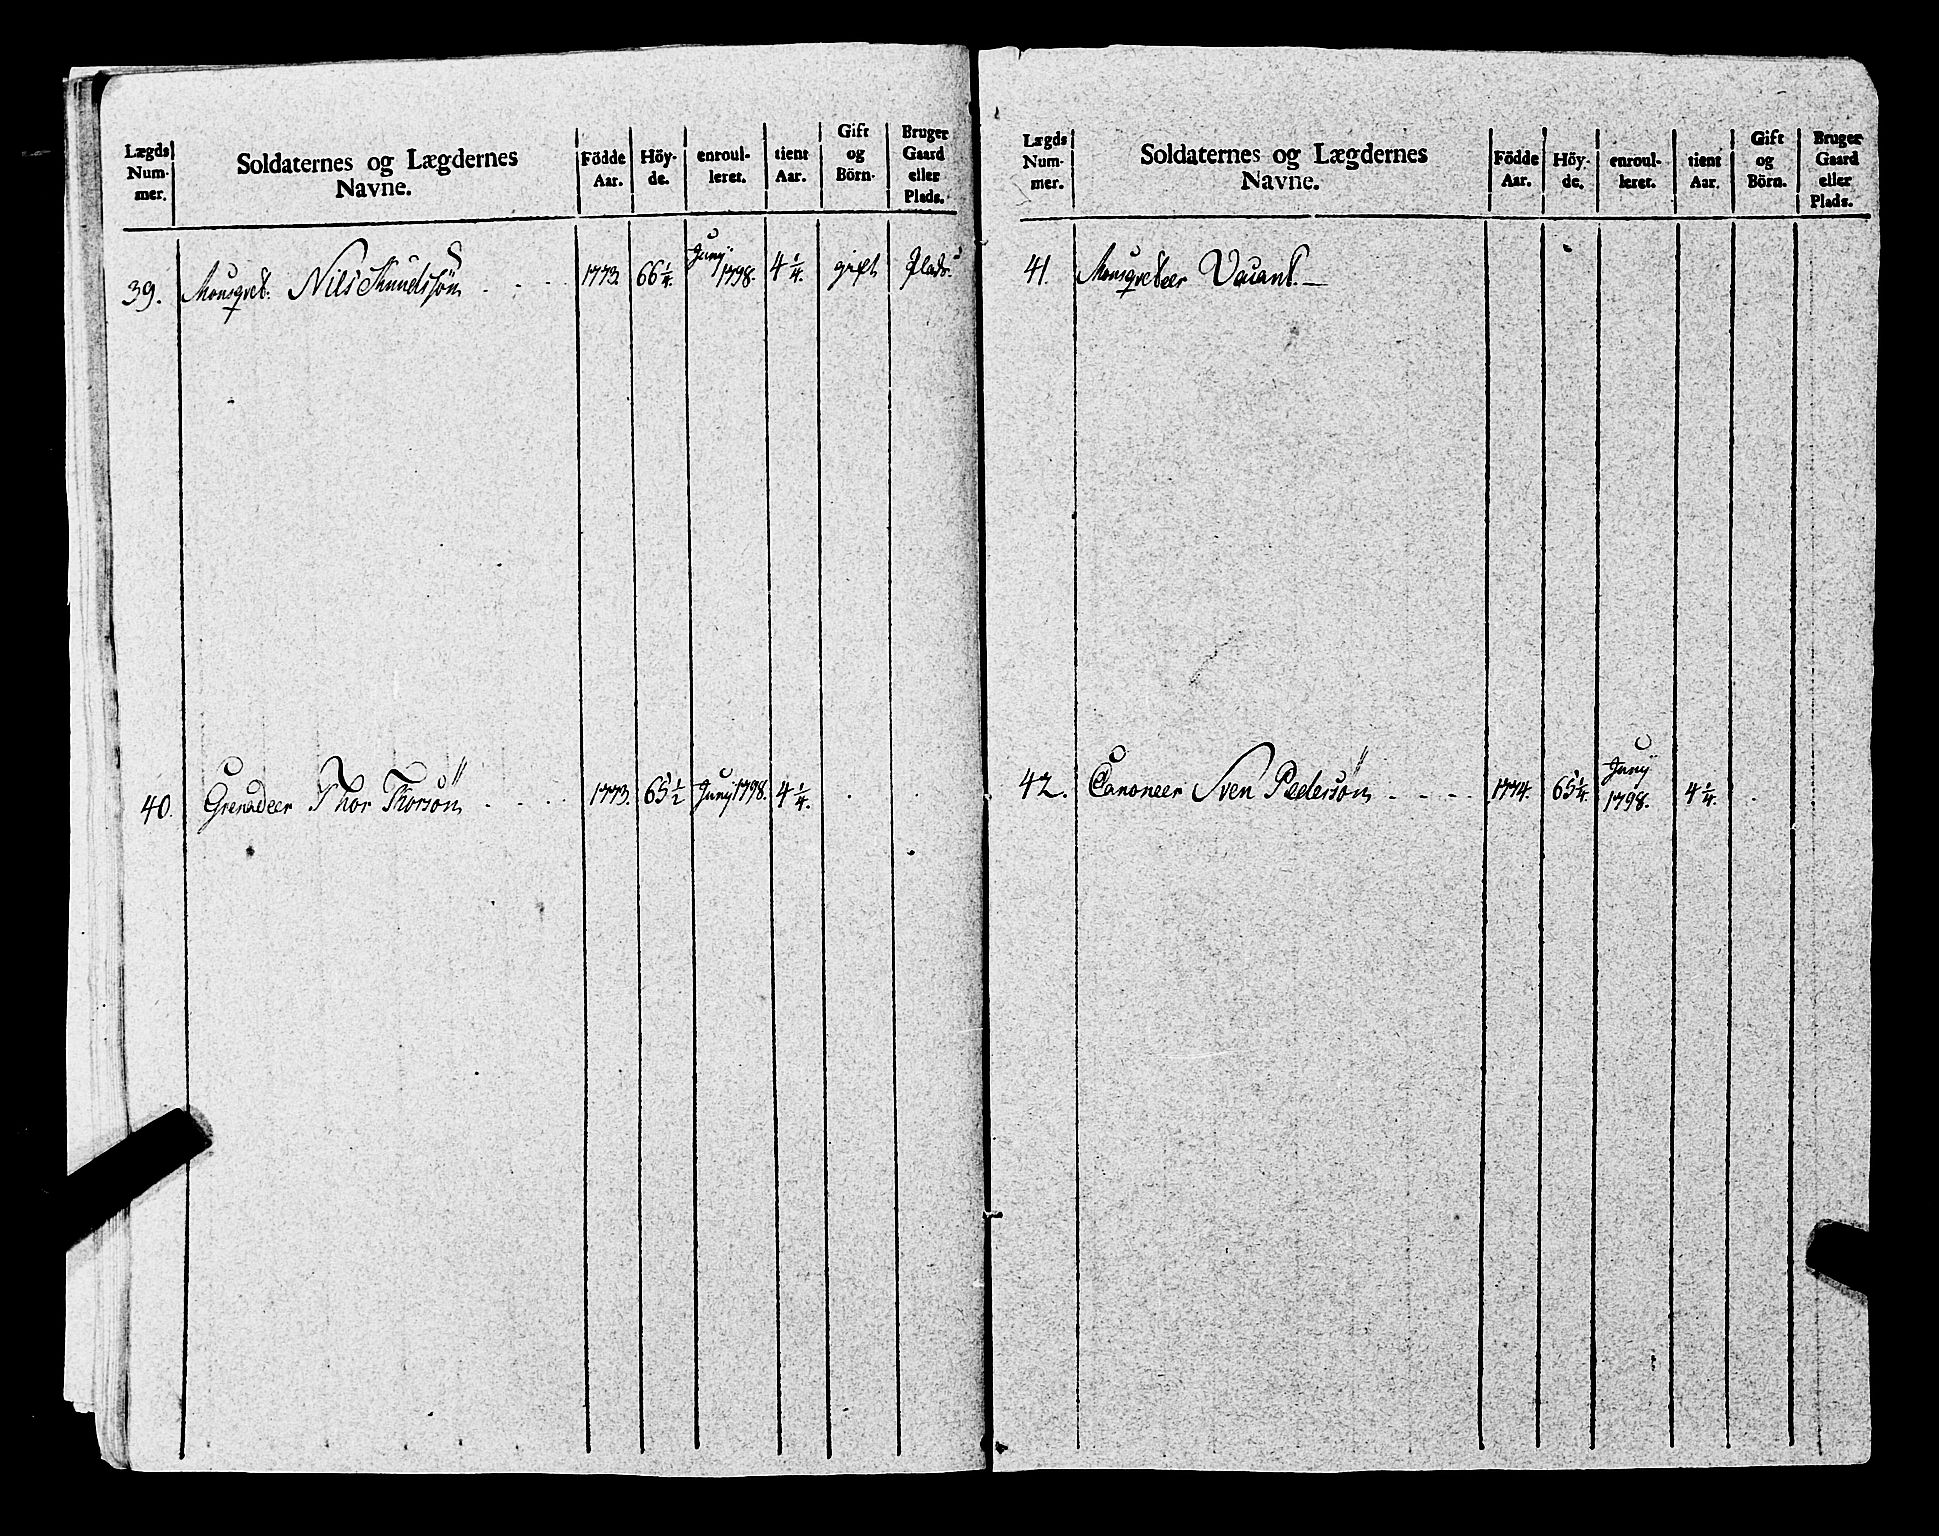 Lægds Num- mer. Soldaternes og Lægdernes Navne. Födde Aar. Höy- de. enroul- leret. tient Aar. Gift og Börn. Bruger Gaard eller Plads.
39. Mousqvet. Nils Knudssön 1773. 66 1/4. Junÿ 1798. 4 1/4. gift Plads.
40. Grenadeer Thor Thorsön 1773. 65 1/2 Junÿ 1798. 4 1/4.
Lægds Num- mer. Soldaternes og Lægdernes Navne. Födde Aar. Höy- de. enroul- leret. tient Aar. Gift og Börn. Bruger Gaard eller Plads.
41. Mousqveteer Vacant.
42. Canoneer Sven Pedersön 1774. 65 1/4. Junÿ 1798. 4 1/4.